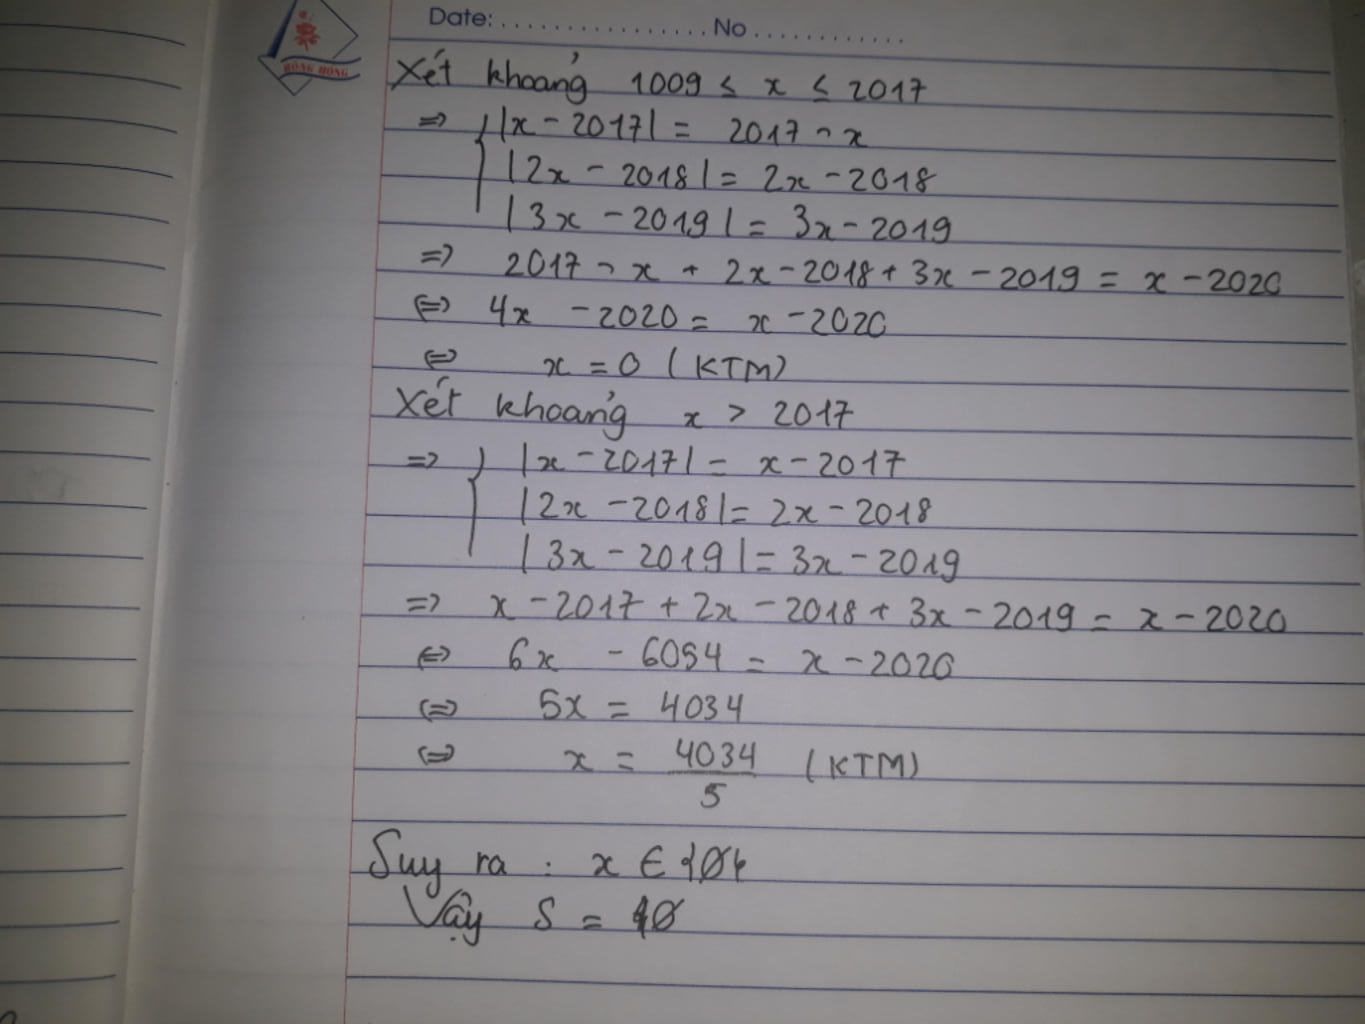 Date: ................ No ............
HỒNG HÀ
Xét khoảng 1009 ≤ x ≤ 2017
⇒ { |x - 2017| = 2017 - x
|2x - 2018| = 2x - 2018
|3x - 2019| = 3x - 2019
⇒ 2017 - x + 2x - 2018 + 3x - 2019 = x - 2020
⇔ 4x - 2020 = x - 2020
⇔ x = 0 (KTM)
Xét khoảng x > 2017
⇒ { |x - 2017| = x - 2017
|2x - 2018| = 2x - 2018
|3x - 2019| = 3x - 2019
⇒ x - 2017 + 2x - 2018 + 3x - 2019 = x - 2020
⇔ 6x - 6054 = x - 2020
⇔ 5x = 4034
⇔ x = 4034/5 (KTM)
Suy ra : x ∈ {Ø}
Vậy S = Ø